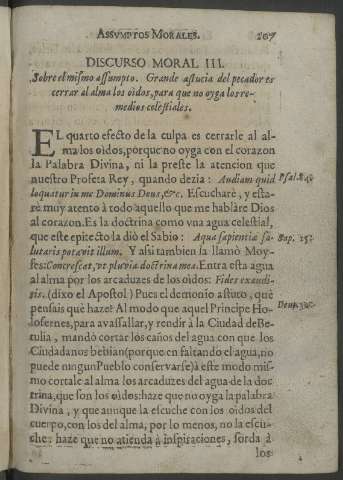 ASSVMPTOS MORALES. 207
DISCURSO MORAL III.
Sobre el mismo assumpto. Grande astucia del pecador es
cerrar al alma los oìdos, para que no oyga los re-
medios celestiales.
EL quarto efecto de la culpa es cerrarle al al-
ma los oìdos, porque no oyga con el corazon
la Palabra Divina, ni la preste la atencion que
nuestro Profeta Rey, quando dezia: Audiam quid Psal. 84.
loquatur in me Dominus Deus, &c. Escucharè, y esta-
rè muy atento à todo aquello que me hablàre Dios
al corazon. Es la doctrina como vna agua celestial,
que este epitecto la diò el Sabio: Aqua sapientiæ sa- Sap. 15.
lutaris potavit illum. Y assi tambien la llamò Moy-
ses: Concrescat, vt pluvia doctrina mea. Entra esta agua
al alma por los arcaduzes de los oìdos: Fides ex audi-
tis. (dixo el Apostol) Pues el demonio astuto, què Deut. 32.
pensais què haze? Al modo que aquel Principe Ho-
lofernes, para avassallar, y rendir à la Ciudad de Be-
tulia, mandò cortar los caños del agua con que los
Ciudadanos bebian (porque en faltando el agua, no
puede ningun Pueblo conservarse) à este modo mis-
mo cortale al alma los arcaduzes del agua de la doc
trina, que son los oìdos: haze que no oyga la palabra
Divina, y que aunque la escuche con los oìdos del
cuerpo, con los del alma, por lo menos, no la escu-
che: haze que no atienda à inspiraciones, sorda à
los